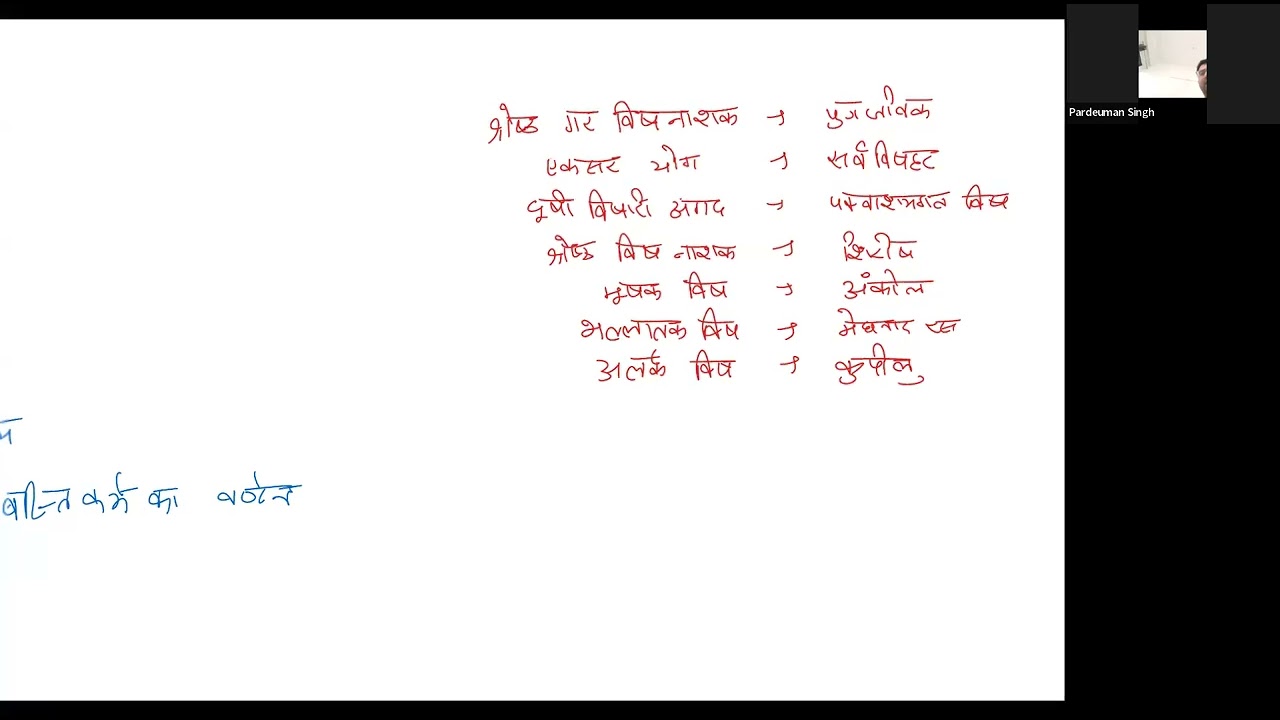 श्रेष्ठ गर विषनाशक → पुत्रजीवक
एकसर योग → सर्वविषहर
दूषी विषारी अगद → पक्वाशयगत विष
श्रेष्ठ विष नाशक → शिरीष
मूषक विष → अंकोल
भल्लातक विष → मेघनाद रस
अलर्क विष → कुपीलु
बस्ति कर्म का वर्णन
Pardeuman Singh